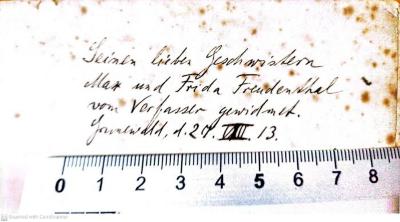 Seinen lieben Geschwistern
Max und Frida Freudenthal
vom Verfasser gewidmet.
Grunewald, d. 27. VIII. 13.
0 1 2 3 4 5 6 7 8
Scanned with CamScanner